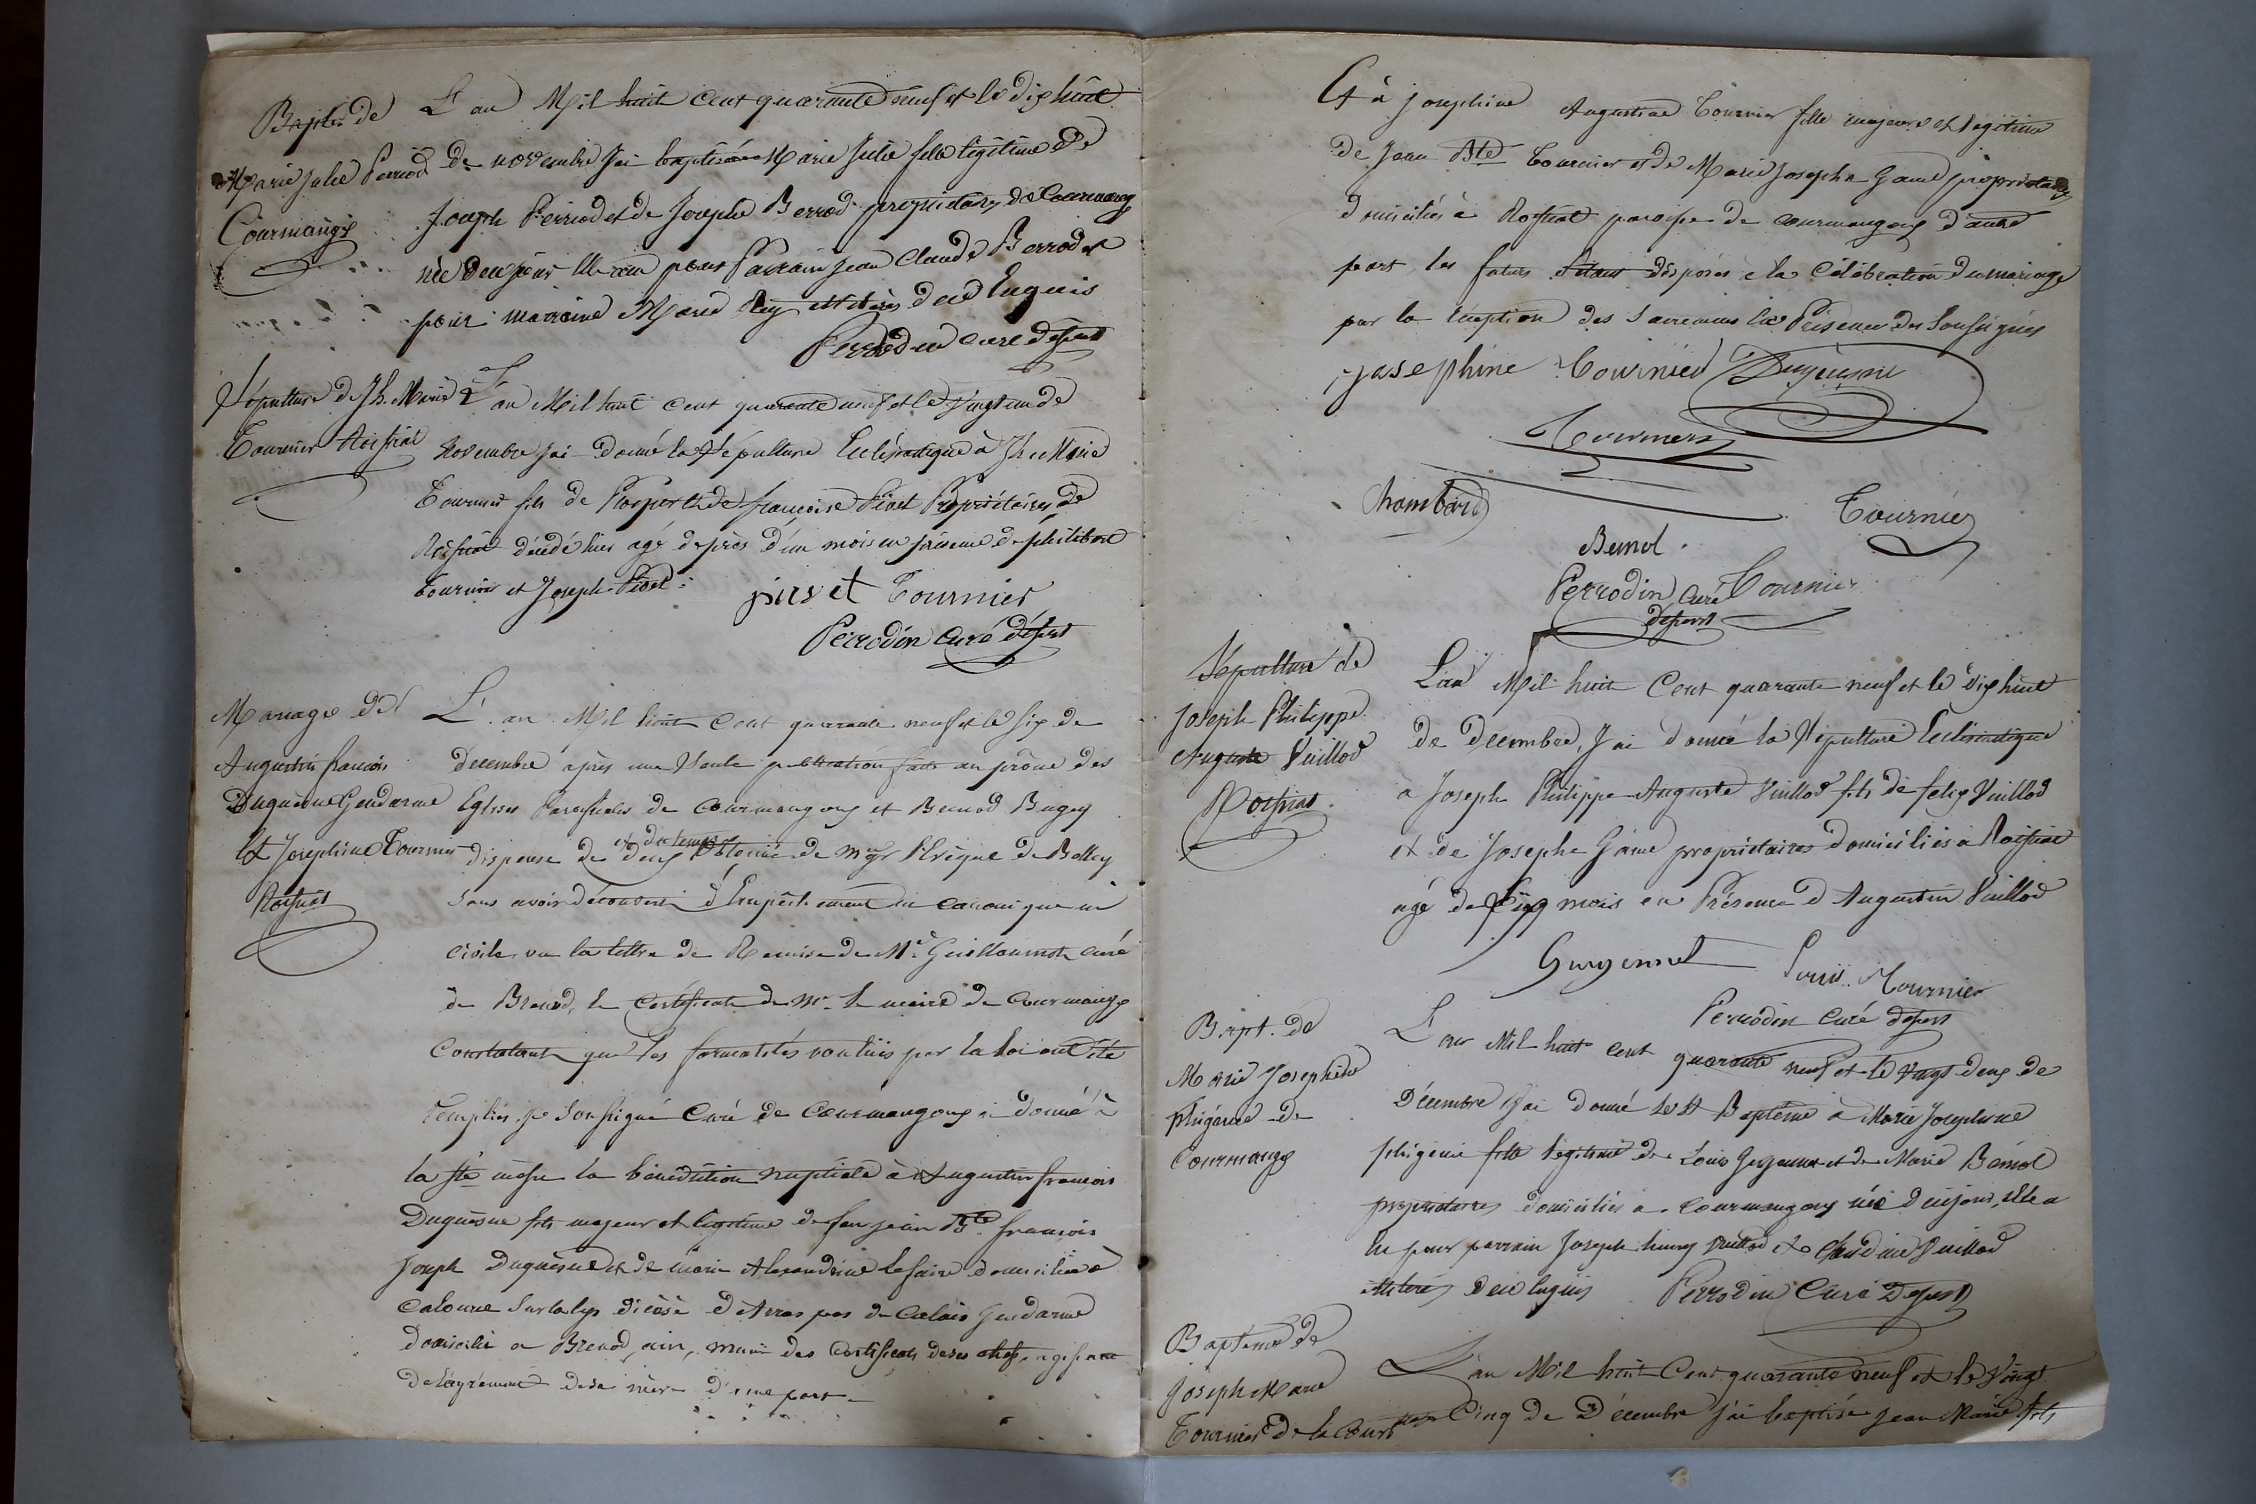 Bapte. de
Marie Julie Perrod
Courmangs
L'an Mil huit Cent quarante neuf et le dix huit
De novembre J'ai baptisé Marie Julie fille légitime de
Joseph Perriod et de Josephe Berrod propriétaires de Courmang
née deux jours pour Parrain Jean Claude Berrod et
pour marraine Marie illitérés de ce Enquis
Perrodin curé dessert
Sépulture de Jh. Marie
Tournier Roissiat
L'an Mil huit Cent quarante neuf et le Vingt un de
Novembre j'ai donné la Sépulture Ecclésiastique à Jh. Marie
Tournier fils de Prosper et de françoise Pivet Propriétaires de
Roissiat décédé hier agé de près d'un mois en présence de philibert
Tournier et Joseph Pivet
pivet Tournier
Perrodin Curé dessert
Mariage de
Augustin francois
Duquesne Gendarme
Et Josephine Tournier
Roissiat
L'an Mil huit Cent quarante neuf et le six de
Decembre après une Seule publication faite au prône des
Eglises Paroissiales de Courmangoux et Brenod Bugey
et du temps
dispense de deux obtenue de Mgr l'Evêque de Belley
Sans avoir découvert d'Empêchement ni canonique ni
Civile vu la lettre de Remise de Mr. Guillaumot curé
de Brenod, le Certificat de Mr. le maire de Courmangs
Constatant que les formalités voulues par la loi ont été
remplies je Soussigné Curé de Courmangoux ai donné à
la Ste messe la bénédiction nuptiale à Augustin francois
Duquesne fils majeur et légitime de feu jean Bte. francois
Joseph Duquesne et de marie Alexandrine Lefaire domiciliée à
Calonne Sur la lys diocèse d'Arras pas de Calais Gendarme
Domicilié a Brenod, ain, muni des Certificats de ses chefs agissant
De l'agrément de sa mère d'une part
Et à Josephine Augustine Tournier fille majeure et légitime
de Jean Bte Tournier et de Marie Josephe Game propriétaires
domiciliés à Roissiat paroisse de courmangoux d'autre
part, les futurs S'étant disposés à la Célébration du mariage
par la réception des Sacremens En Présence des Soussignés
josephine Tournier Duquesne
Tournier
Chambard Tournier
Bernol
Perrodin Curé Tournier
dessert
Sépulture de
Joseph Philippe
Auguste Vuillod
Roissiat
L'an Mil huit Cent quarante neuf et le dix huit
de Decembre, J'ai donné la Sépulture Ecclésiastique
à Joseph Philippe Auguste Vuillod fils de felix Vuillod
et de Josephe Game propriétaires domiciliés à Roissiat
agé de Cinq mois en Présence d'Augustin Vuillod
Guyennet Tournier
Perrodin Curé dessert
Bapt. de
Marie Josephine
phigénie de
Courmangs
L'an Mil huit cent quarante neuf et le vingt deux de
Décembre J'ai donné le St Baptême à Marie Josephine
phigénie fille légitime de Louis et de Marie Bernol
propriétaires domiciliés a Courmangoux née d'un jour, Elle a
eu pour parrain Joseph Vuillod et Claudine Vuillod
illitérés de ce Enquis Perrodin Curé Dessert
Baptême de
Joseph Marie
Tournier de la Cour
L'an Mil huit Cent quarante neuf et le Vingt
Cinq de Décembre j'ai baptisé Jean Marie fils